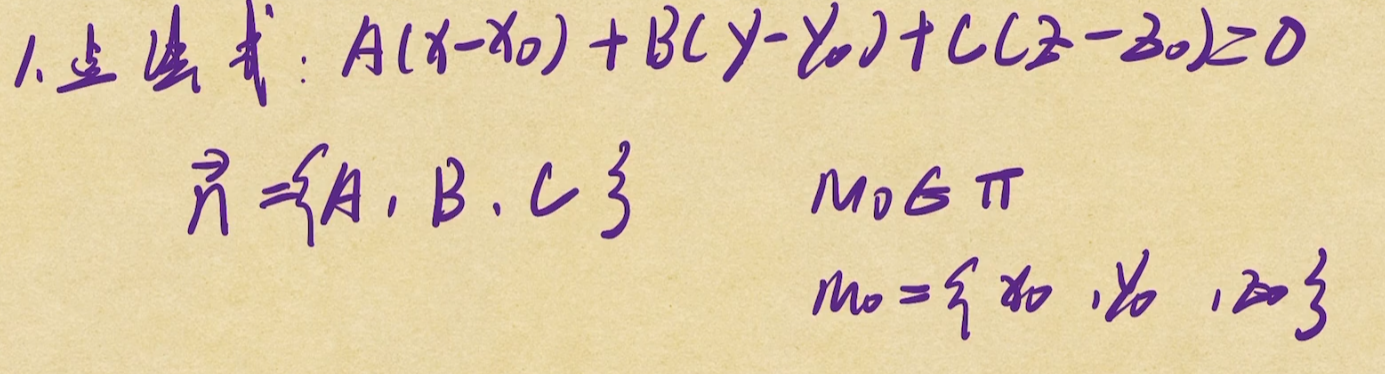 1. 点法式: A(x-x₀)+B(y-y₀)+C(z-z₀)=0
n⃗={A, B, C} M₀∈π
M₀={x₀, y₀, z₀}